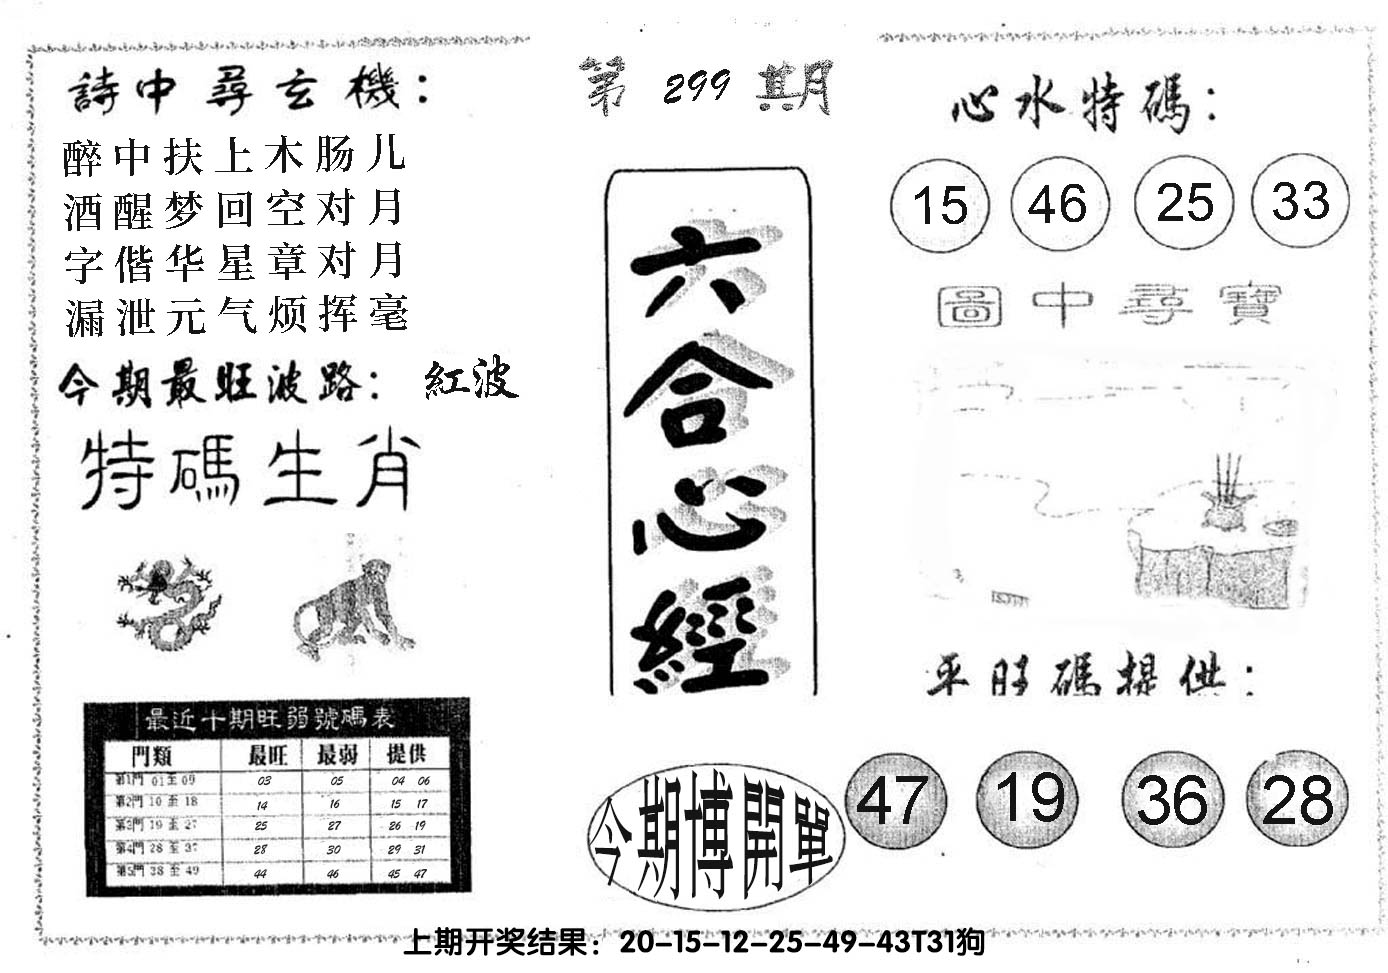 詩中尋玄機：
醉中扶上木肠儿
酒醒梦回空对月
字偕华星章对月
漏泄元气烦挥毫
今期最旺波路：紅波
特碼生肖
最近十期旺弱號碼表
門類 最旺 最弱 提供
第1門 01至09 03 05 04 06
第2門 10至18 14 16 15 17
第3門 19至27 25 27 26 19
第4門 28至37 28 30 29 31
第5門 38至49 44 46 45 47
第299期
六合心經
今期博開單
心水特碼：
15 46 25 33
圖中尋寶
平旺碼提供：
47 19 36 28
上期开奖结果：20-15-12-25-49-43T31狗